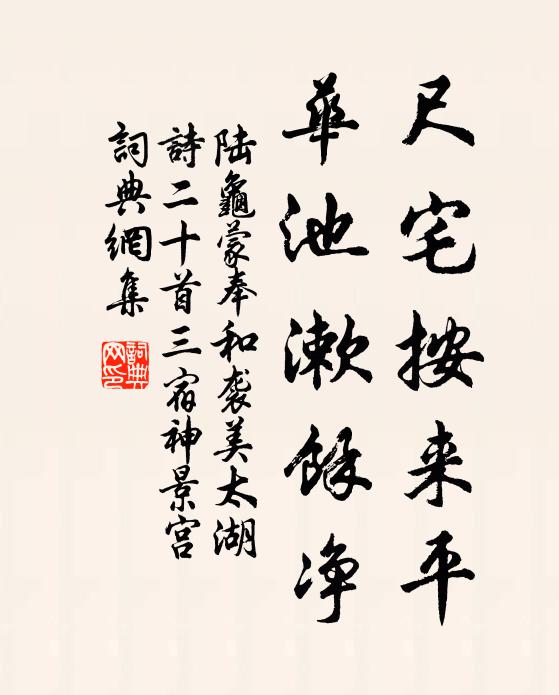 尺宅按来平
華池漱餘净
陆龜蒙奉和袭美太湖
詩二十首三宿神景宫
詞典網集
詞典网印